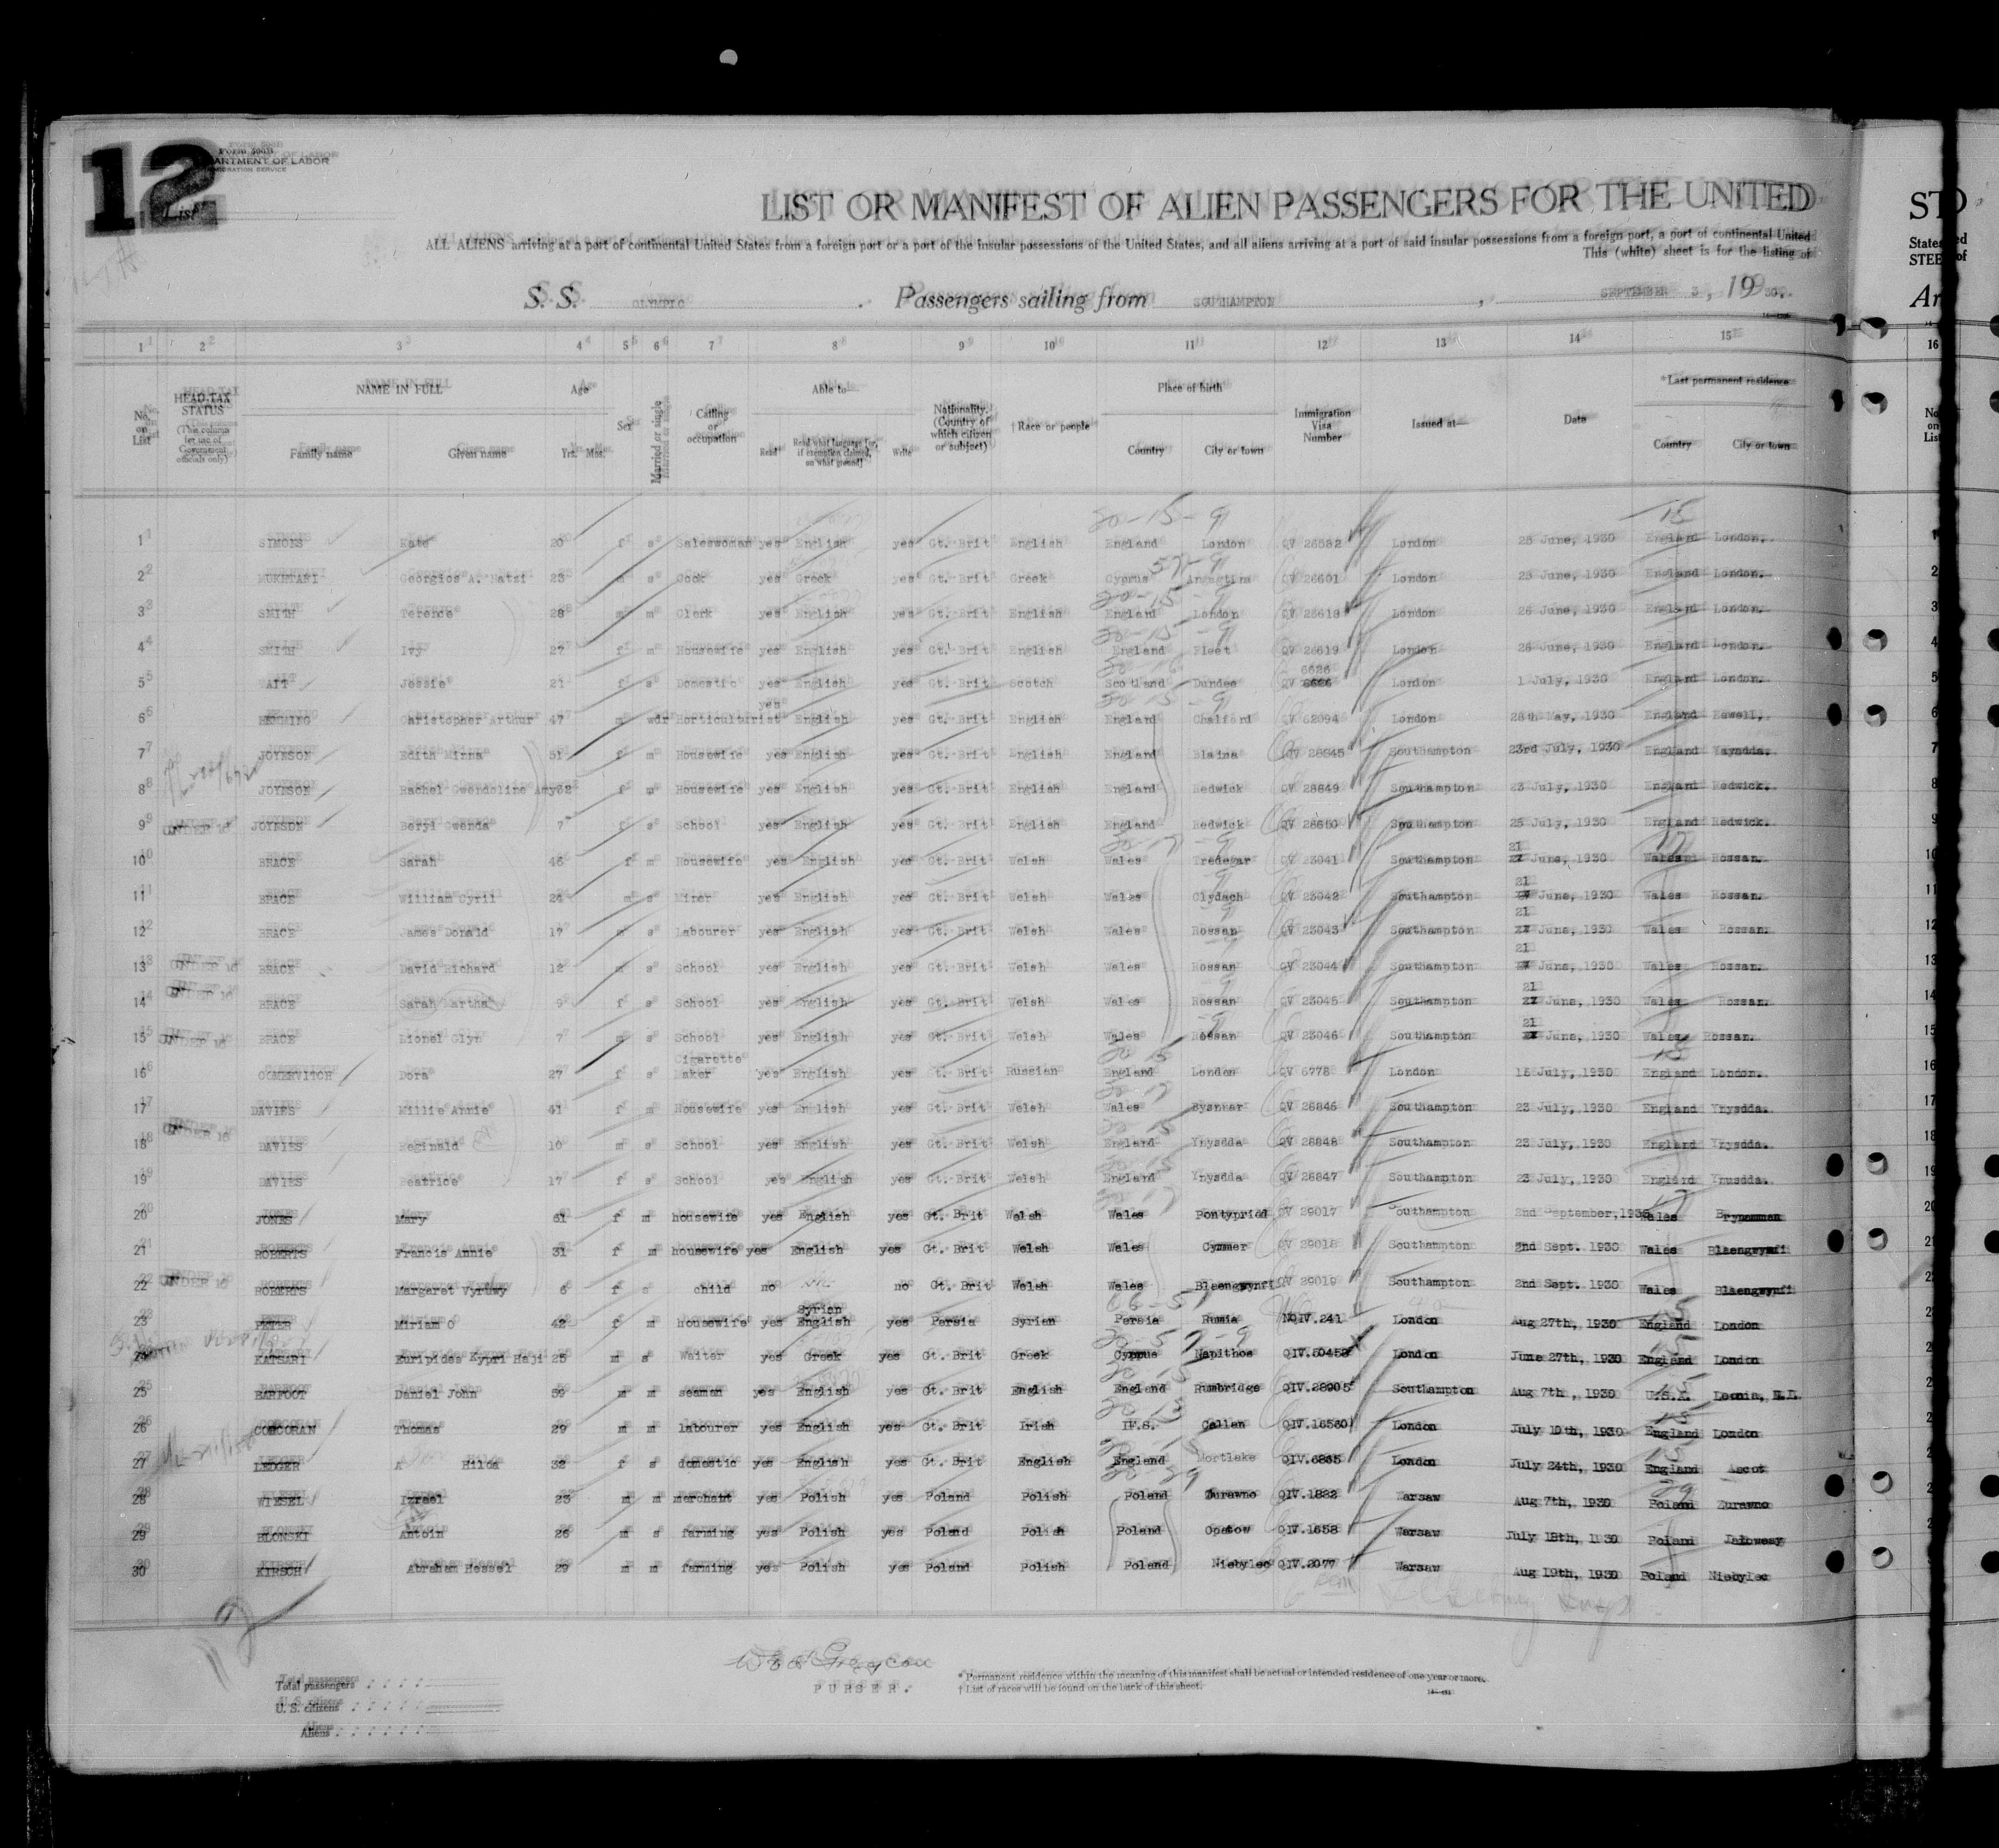 12
Form 500B
DEPARTMENT OF LABOR
IMMIGRATION SERVICE
List
LIST OR MANIFEST OF ALIEN PASSENGERS FOR THE UNITED
ALL ALIENS arriving at a port of continental United States from a foreign port or a port of the insular possessions of the United States, and all aliens arriving at a port of said insular possessions from a foreign port, a port of continental United
This (white) sheet is for the listing of
S. S. OLYMPIC . Passengers sailing from SOUTHAMPTON , SEPTEMBER 3 , 19 30.
1 2 3 4 5 6 7 8 9 10 11 12 13 14 15
No. on List
HEAD-TAX STATUS (This column for use of Government officials only)
NAME IN FULL Family name Given name
Age Yrs. Mos.
Sex
Married or single
Calling or occupation
Able to— Read Read what language [or, if exemption claimed, on what ground] Write
Nationality. (Country of which citizen or subject)
†Race or people
Place of birth Country City or town
Immigration Visa Number
Issued at—
Date
*Last permanent residence Country City or town
1 SIMONS Kate 20 f s Saleswoman yes English yes Gt. Brit English England London QV 26582 London 25 June, 1930 England London.
2 MUKHTARI Georgios A. Hatzi 23 m s Cook yes Greek yes Gt. Brit Greek Cyprus QV 26601 London 25 June, 1930 England London.
3 SMITH Terence 28 m m Clerk yes English yes Gt. Brit English England London QV 26618 London 26 June, 1930 England London.
4 SMITH Ivy 27 f m Housewife yes English yes Gt. Brit English England Fleet QV 26619 London 26 June, 1930 England London.
5 WAIT Jessie 21 f s Domestic yes English yes Gt. Brit Scotch Scotland Dundee QV 6626 London 1 July, 1930 England London.
6 HEMMING Christopher Arthur 47 m wdr Horticulturist yes English yes Gt. Brit English England Chalford QV 62094 London 28th May, 1930 England Ewell.
7 JOYNSON Edith Minna 51 f m Housewife yes English yes Gt. Brit English England Blaina QV 28845 Southampton 23rd July, 1930 England
8 JOYNSON Rachel Gwendoline Amy 32 f m Housewife yes English yes Gt. Brit English England Redwick QV 28649 Southampton 23 July, 1930 England Redwick.
9 UNDER 16 JOYNSON Beryl Gwenda 7 f s School yes English yes Gt. Brit English England Redwick QV 28650 Southampton 25 July, 1930 England Redwick.
10 BRACE Sarah 46 f m Housewife yes English yes Gt. Brit Welsh Wales Tredegar QV 23041 Southampton 21 June, 1930 Wales Rossan.
11 BRACE William Cyril 24 m s Miner yes English yes Gt. Brit Welsh Wales Clydach QV 23042 Southampton 21 June, 1930 Wales Rossan.
12 BRACE James Donald 17 m s Labourer yes English yes Gt. Brit Welsh Wales Rossan QV 23043 Southampton 21 June, 1930 Wales Rossan.
13 UNDER 16 BRACE David Richard 12 m s School yes English yes Gt. Brit Welsh Wales Rossan QV 23044 Southampton 21 June, 1930 Wales Rossan.
14 UNDER 16 BRACE Sarah Martha 9 f s School yes English yes Gt. Brit Welsh Wales Rossan QV 23045 Southampton 21 June, 1930 Wales Rossan.
15 UNDER 16 BRACE Lionel Glyn 7 m s School yes English yes Gt. Brit Welsh Wales Rossan QV 23046 Southampton 21 June, 1930 Wales Rossan.
16 Dora 27 f s Cigarette Maker yes English yes Gt. Brit Russian England London QV 6778 London 15 July, 1930 England London.
17 DAVIES Millie Annie 41 f m Housewife yes English yes Gt. Brit Welsh Wales QV 28846 Southampton 23 July, 1930 England Ynysdda.
18 UNDER 16 DAVIES Reginald 10 m s School yes English yes Gt. Brit Welsh England Ynysdda QV 28848 Southampton 23 July, 1930 England Ynysdda.
19 DAVIES Beatrice 17 f s School yes English yes Gt. Brit Welsh England Ynysdda QV 28847 Southampton 23 July, 1930 England Ynusdda.
20 JONES Mary 51 f m housewife yes English yes Gt. Brit Welsh Wales Pontypridd QV 29017 Southampton 2nd September, 1930 Wales Brynamman
21 ROBERTS Francis Annie 31 f m housewife yes English yes Gt. Brit Welsh Wales Cymmer QV 29018 Southampton 2nd Sept. 1930 Wales Blaengwynfi
22 UNDER 16 ROBERTS Margaret Vyrnwy 6 f s child no no Gt. Brit Welsh Wales Blaengwynfi QV 29019 Southampton 2nd Sept. 1930 Wales Blaengwynfi
23 PETER Miriam O 42 f m housewife yes Syrian English yes Persia Syrian Persia Rumia NQIV.241 London Aug 27th, 1930 England London
24 KATSARI Euripides Kypri Haji 25 m s Waiter yes Greek yes Gt. Brit Greek Cyprus Napithos QIV.50458 London June 27th, 1930 England London
25 BARFOOT Daniel John 59 m m seaman yes English yes Gt. Brit English England Rumbridge QIV.28905 Southampton Aug 7th, 1930 U.S.A. Leonia,
26 CORCORAN Thomas 29 m m labourer yes English yes Gt. Brit Irish I.F.S. Callan QIV.16560 London July 10th, 1930 England London
27 LEDGER A Hilda 32 f s domestic yes English yes Gt. Brit English England Mortlake QIV.6865 London July 24th, 1930 England Ascot
28 WIESEL Izrael 23 m m merchant yes Polish yes Poland Polish Poland Zurawno QIV.1882 Warsaw Aug 7th, 1930 Poland Zurawno
29 BLONSKI Antoin 26 m s farming yes Polish yes Poland Polish Poland Opatow QIV.1658 Warsaw July 18th, 1930 Poland Jalowesy
30 KIRSCH Abraham Hessel 29 m m farming yes Polish yes Poland Polish Poland Niebylec QIV.2077 Warsaw Aug 19th, 1930 Poland Niebylec
PURSER.
Total passengers
U. S. citizens
Aliens
* Permanent residence within the meaning of this manifest shall be actual or intended residence of one year or more.
† List of races will be found on the back of this sheet.